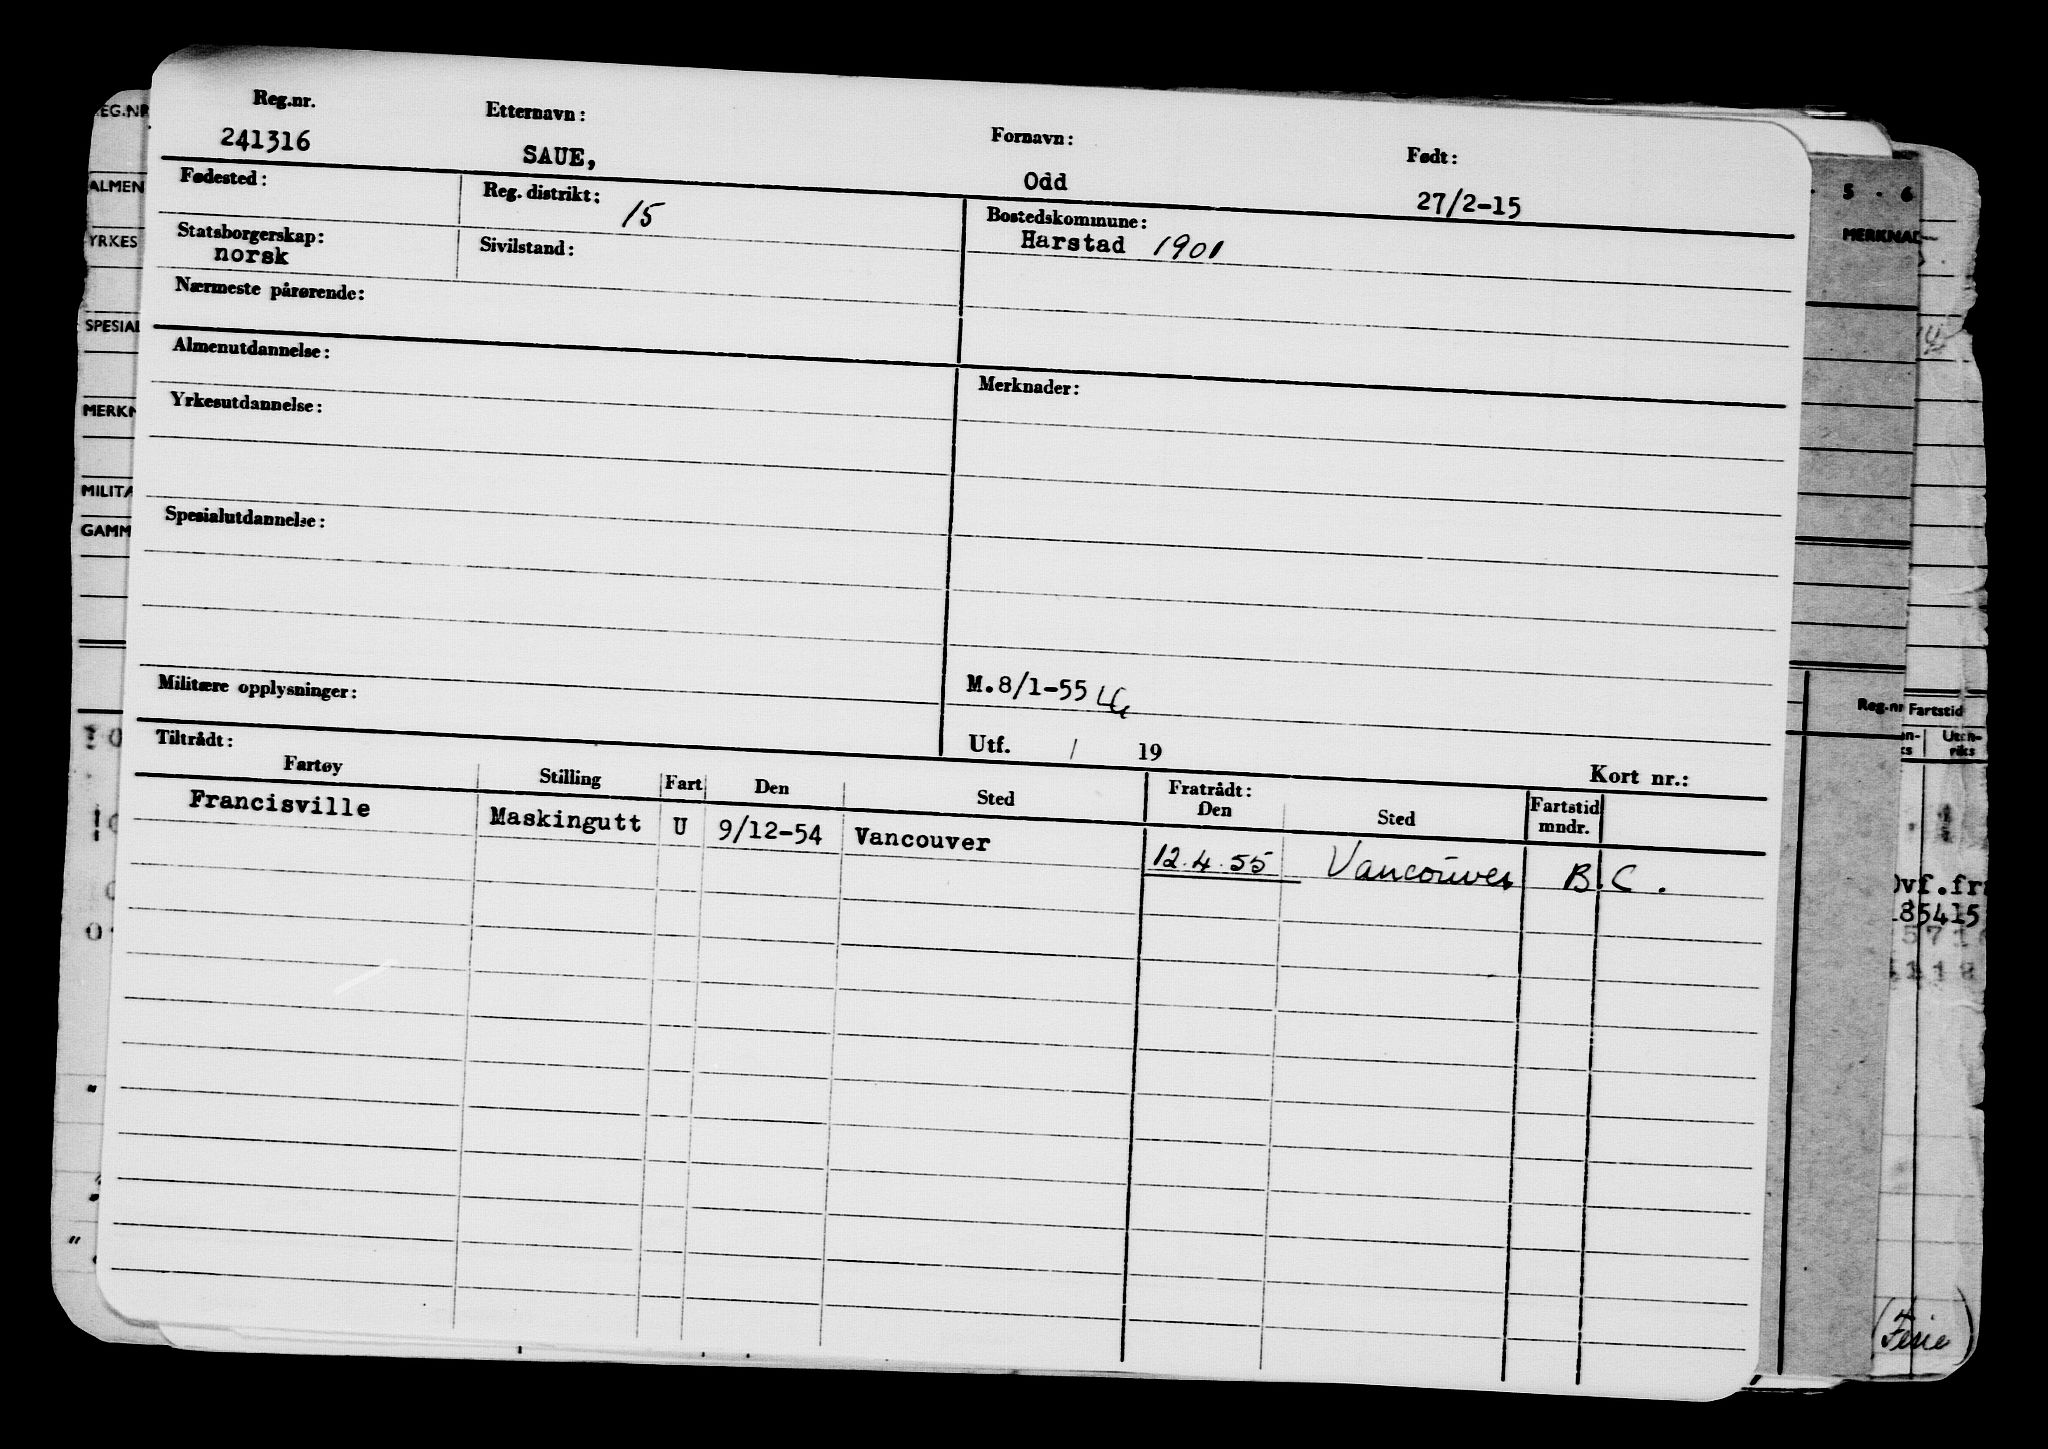 Reg.nr. Etternavn: Fornavn: Født:
241316 SAUE, Odd 27/2-15
Fødested: Reg. distrikt: 15 Bostedskommune:
Harstad 1901
Statsborgerskap: Sivilstand:
norsk
Nærmeste pårørende:
Almenutdannelse: Merknader:
Yrkesutdannelse:
Spesialutdannelse:
Militære opplysninger: M.8/1-55
Utf. / 19
Kort nr.:
Tiltrådt: Fratrådt:
Fartøy Stilling Fart Den Sted Den Sted Fartstid
mndr.
Francisville Maskingutt U 9/12-54 Vancouver 12.4.55 Vancouver B.C.
REG.NR
ALMEN
YRKES
SPESIAL
MERKN
MILITÆ
GAMM
5 - 6
MERKNAD
Reg.nr Fartstid
Uten-
riks
Ovf.fr
85415
(Ferie)